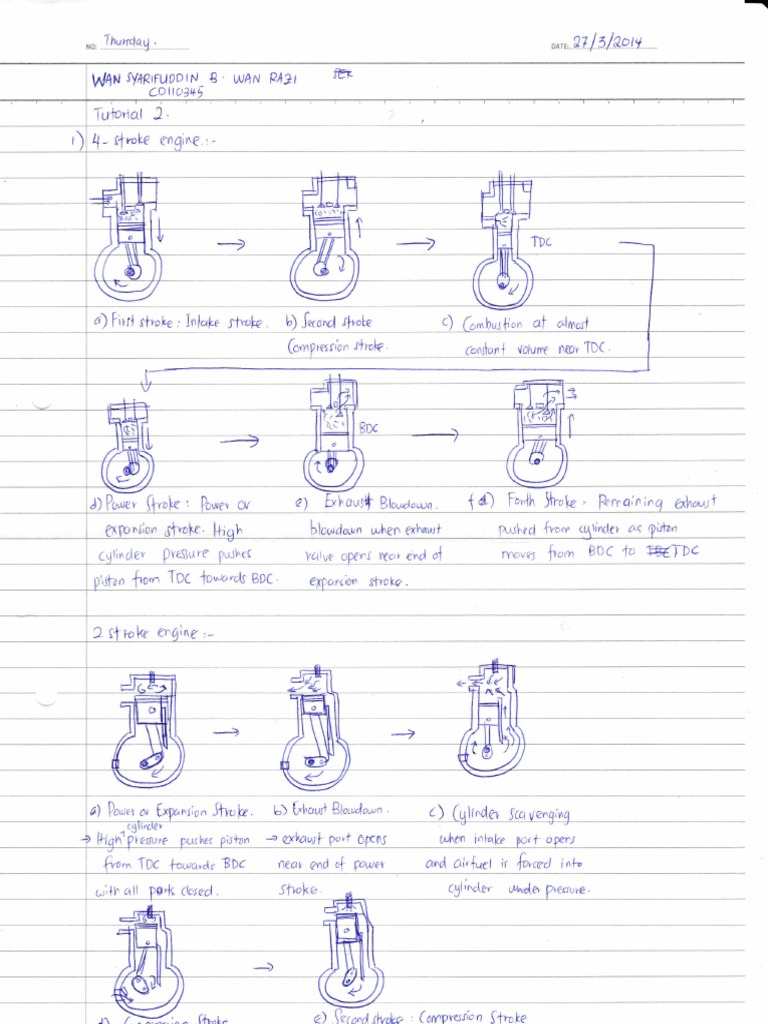 NO: Thursday.
DATE: 27/3/2014
WAN SYARIFUDDIN B. WAN RAZI
CD110345
Tutorial 2.
1) 4-stroke engine:-
TDC
a) First stroke: Intake stroke.
b) Second stroke
Compression stroke.
c) Combustion at almost
constant volume near TDC.
BDC
d) Power Stroke: Power or
expansion stroke. High
cylinder pressure pushes
piston from TDC towards BDC.
e) Exhaust Blowdown.
blowdown when exhaust
valve opens near end of
expansion stroke.
f) Forth Stroke. Remaining exhaust
pushed from cylinder as piston
moves from BDC to TDC
2 stroke engine:-
a) Power or Expansion Stroke.
→ High cylinder pressure pushes piston
from TDC towards BDC
with all ports closed.
b) Exhaust Blowdown.
→ exhaust port opens
near end of power
stroke.
c) Cylinder scavenging
when intake port opens
and airfuel is forced into
cylinder under pressure.
Stroke
e) Second stroke: Compression Stroke